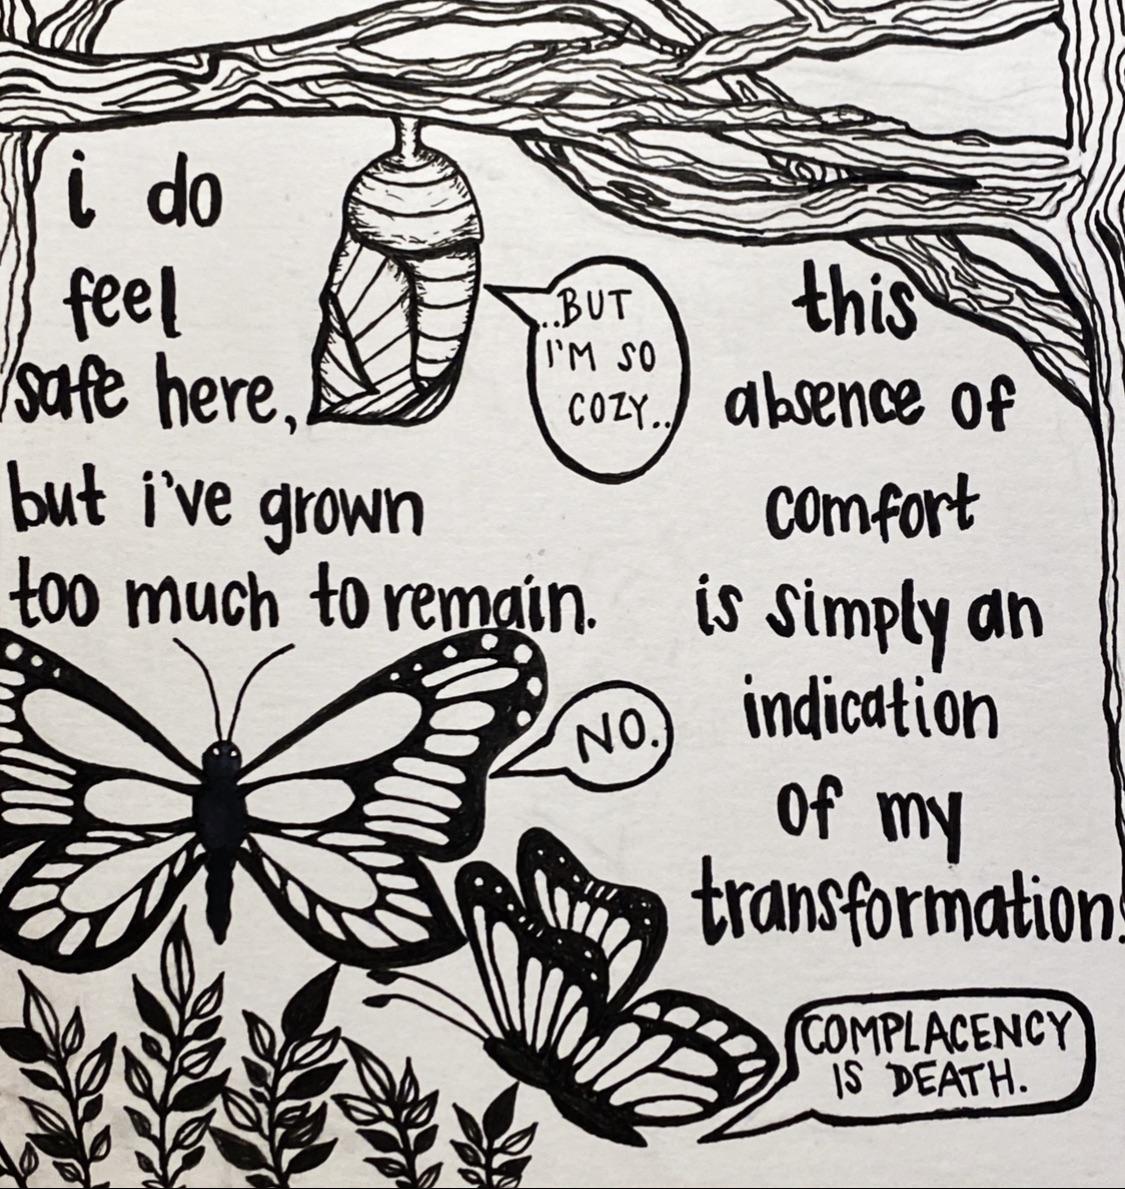 i do
feel
safe here,
but i've grown
too much to remain.
..BUT
I'M SO
COZY..
this
absence of
comfort
is simply an
indication
of my
transformation.
NO.
COMPLACENCY
IS DEATH.